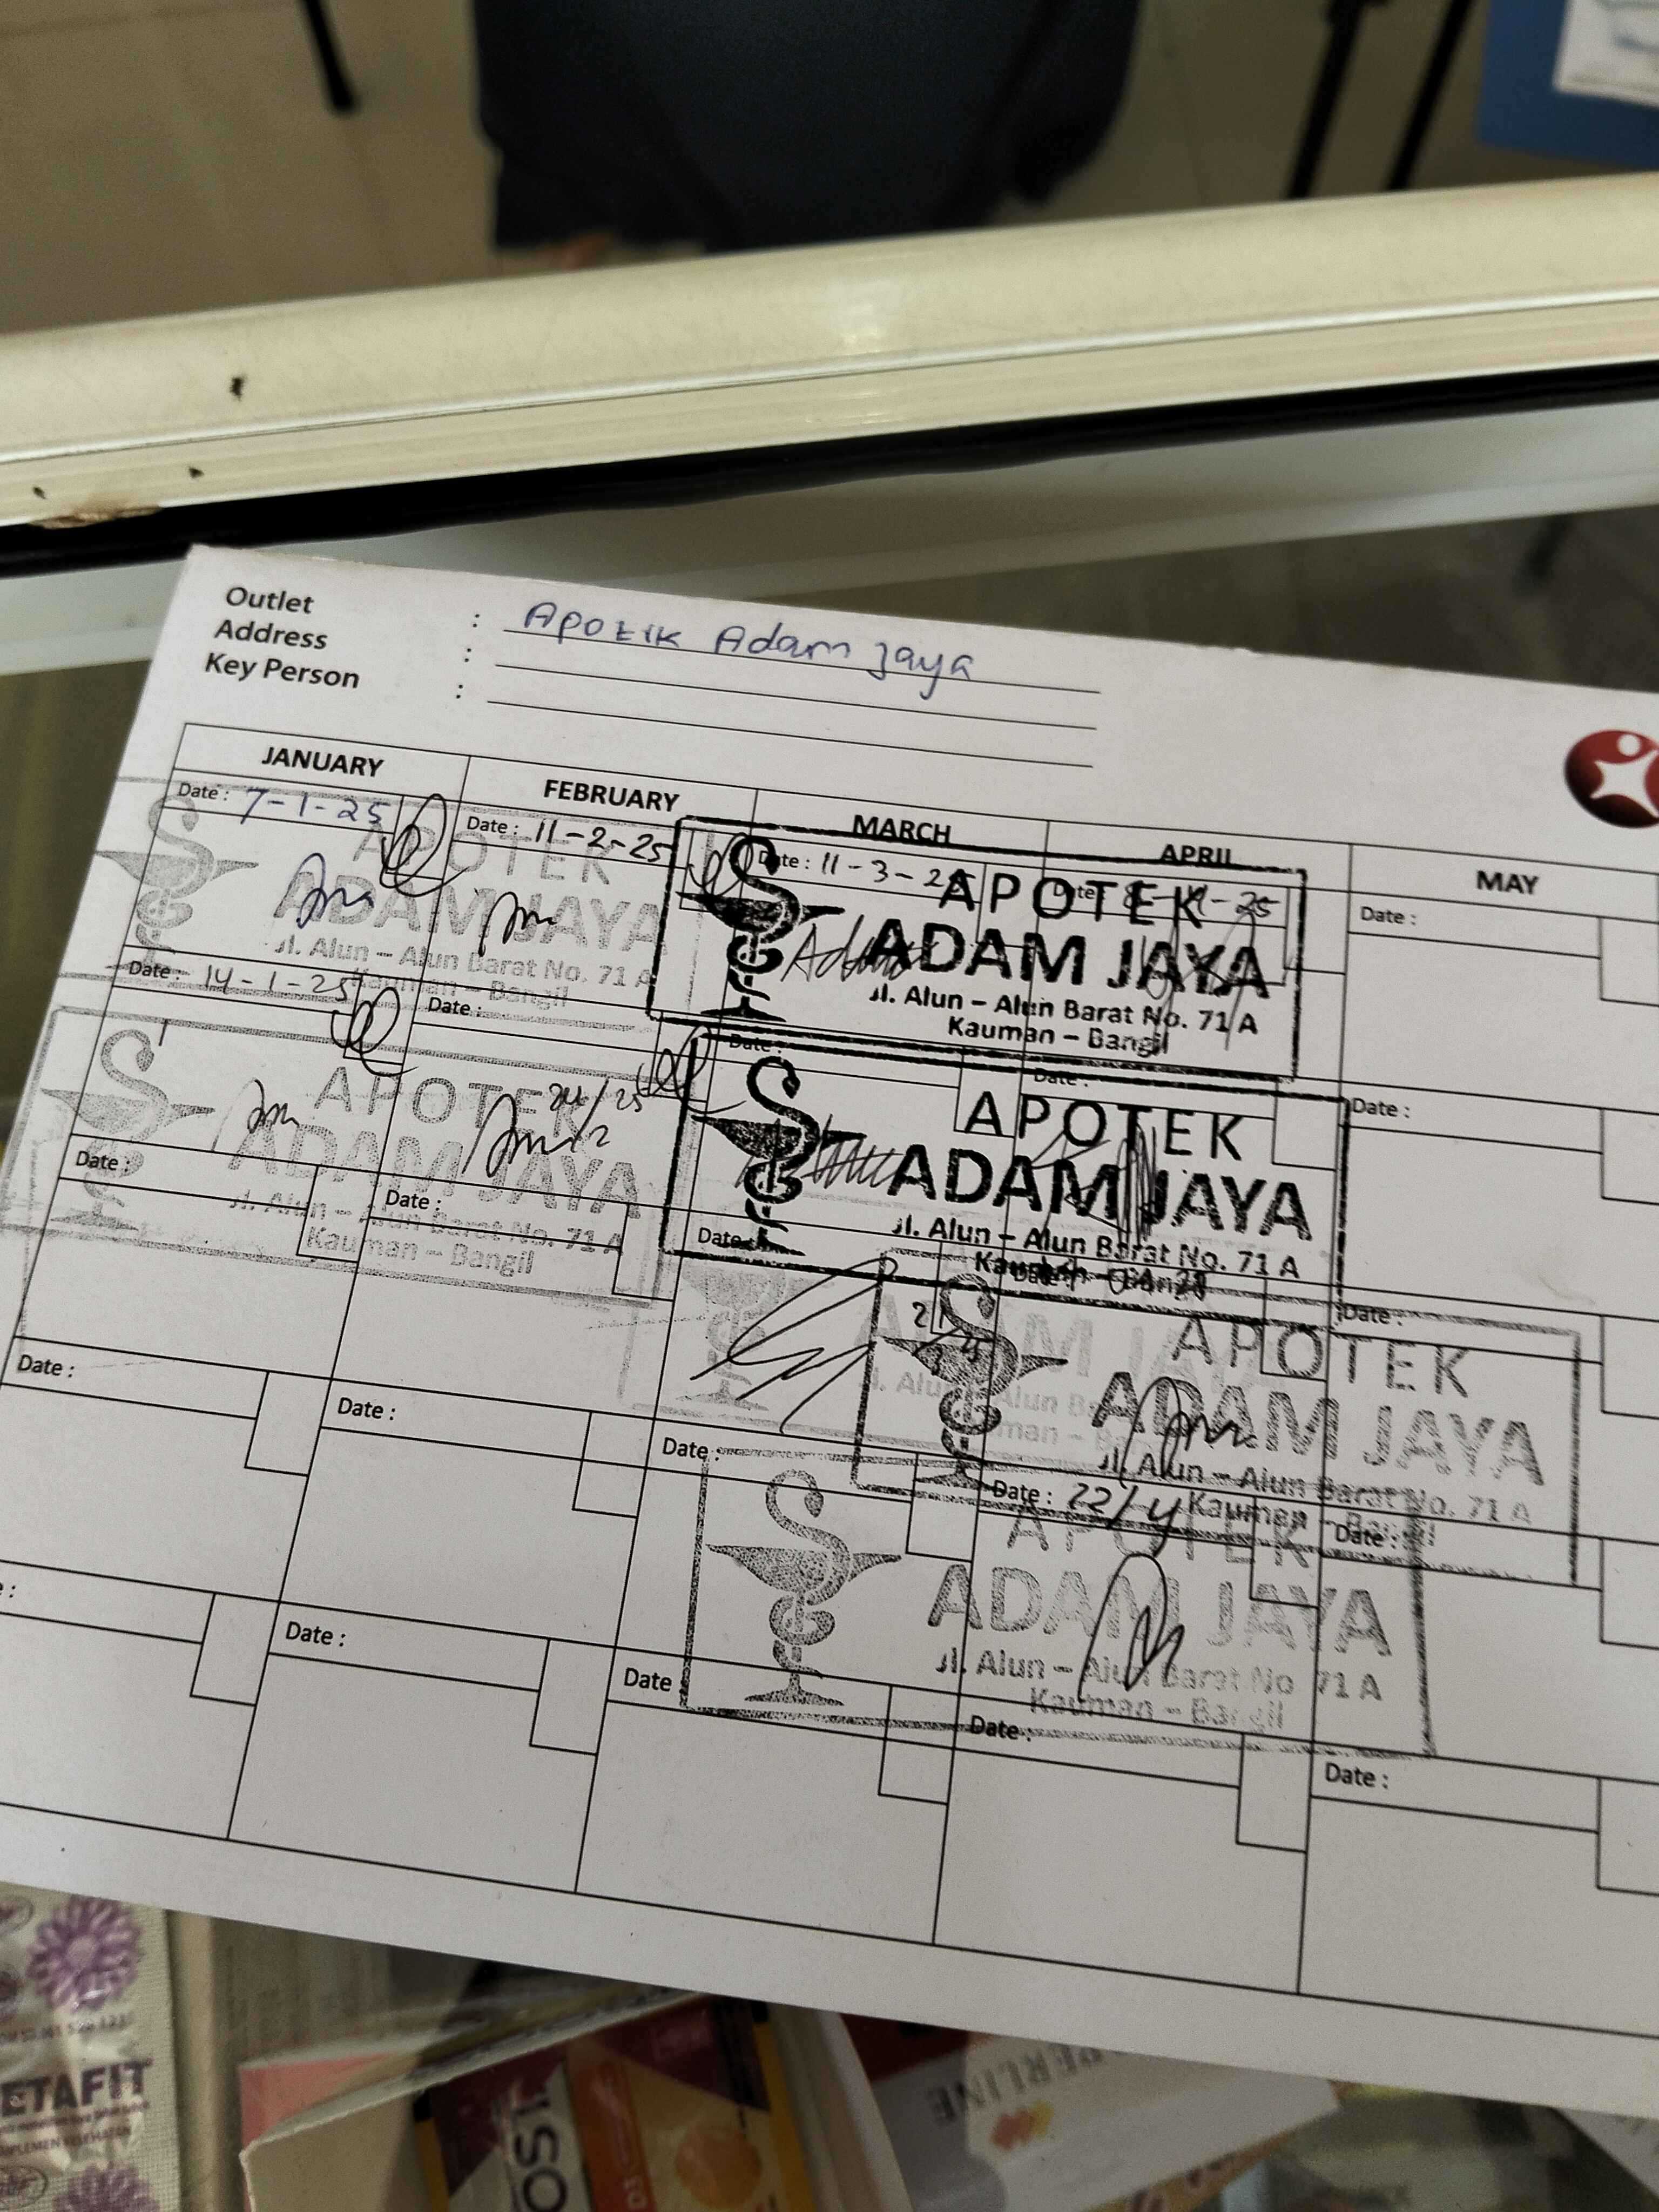 Outlet : Apotik Adam Jaya
Address :
Key Person :
JANUARY FEBRUARY MARCH APRIL MAY
Date : 7-1-25
Date : 11-2-25
Date : 11-3-25
Date :
Date :
APOTEK
ADAM JAYA
Jl. Alun - Alun Barat No. 71 A
Kauman - Bangil
APOTEK
ADAM JAYA
Jl. Alun - Alun Barat No. 71 A
Kauman - Bangil
Date : 14-1-25
Date :
Date :
Date :
Date :
APOTEK
ADAM JAYA
Jl. Alun - Alun Barat No. 71 A
Kauman - Bangil
APOTEK
ADAM JAYA
Jl. Alun - Alun Barat No. 71 A
Kauman - Bangil
Date :
Date :
Date :
Date :
Date :
APOTEK
ADAM JAYA
Jl. Alun - Alun Barat No. 71 A
Kauman - Bangil
Date :
Date :
Date :
Date : 22/4
Date :
APOTEK
ADAM JAYA
Jl. Alun - Alun Barat No 71 A
Kauman - Bangil
Date :
Date
Date :
Date :
ETAFIT